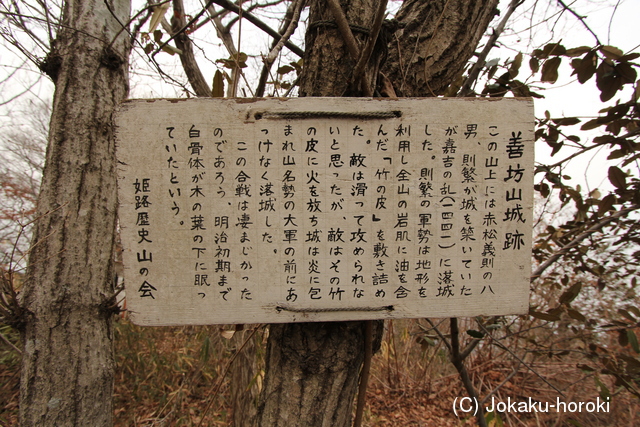 善坊山城跡
この山上には赤松義則の八
男、則繁が城を築いていた
が嘉吉の乱(一四四一)に落城
した。則繁の軍勢は地形を
利用し全山の岩肌に油を含
んだ「竹の皮」を敷き詰め
た。敵は滑って攻められな
いと思ったが、敵はその竹
の皮に火を放ち城は炎に包
まれ山名勢の大軍の前にあ
っけなく落城した。
この合戦は凄まじかった
のであろう、明治初期まで
白骨体が木の葉の下に眠っ
ていたという。
姫路歴史山の会
(C) Jokaku-horoki